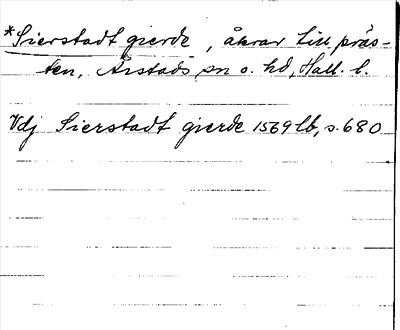 *Sierstadt gierde, åkrar till präs-
ten, Årstads sn o. hd, Hall. l.
Vdj Sierstadt gierde 1569 lb, s. 680